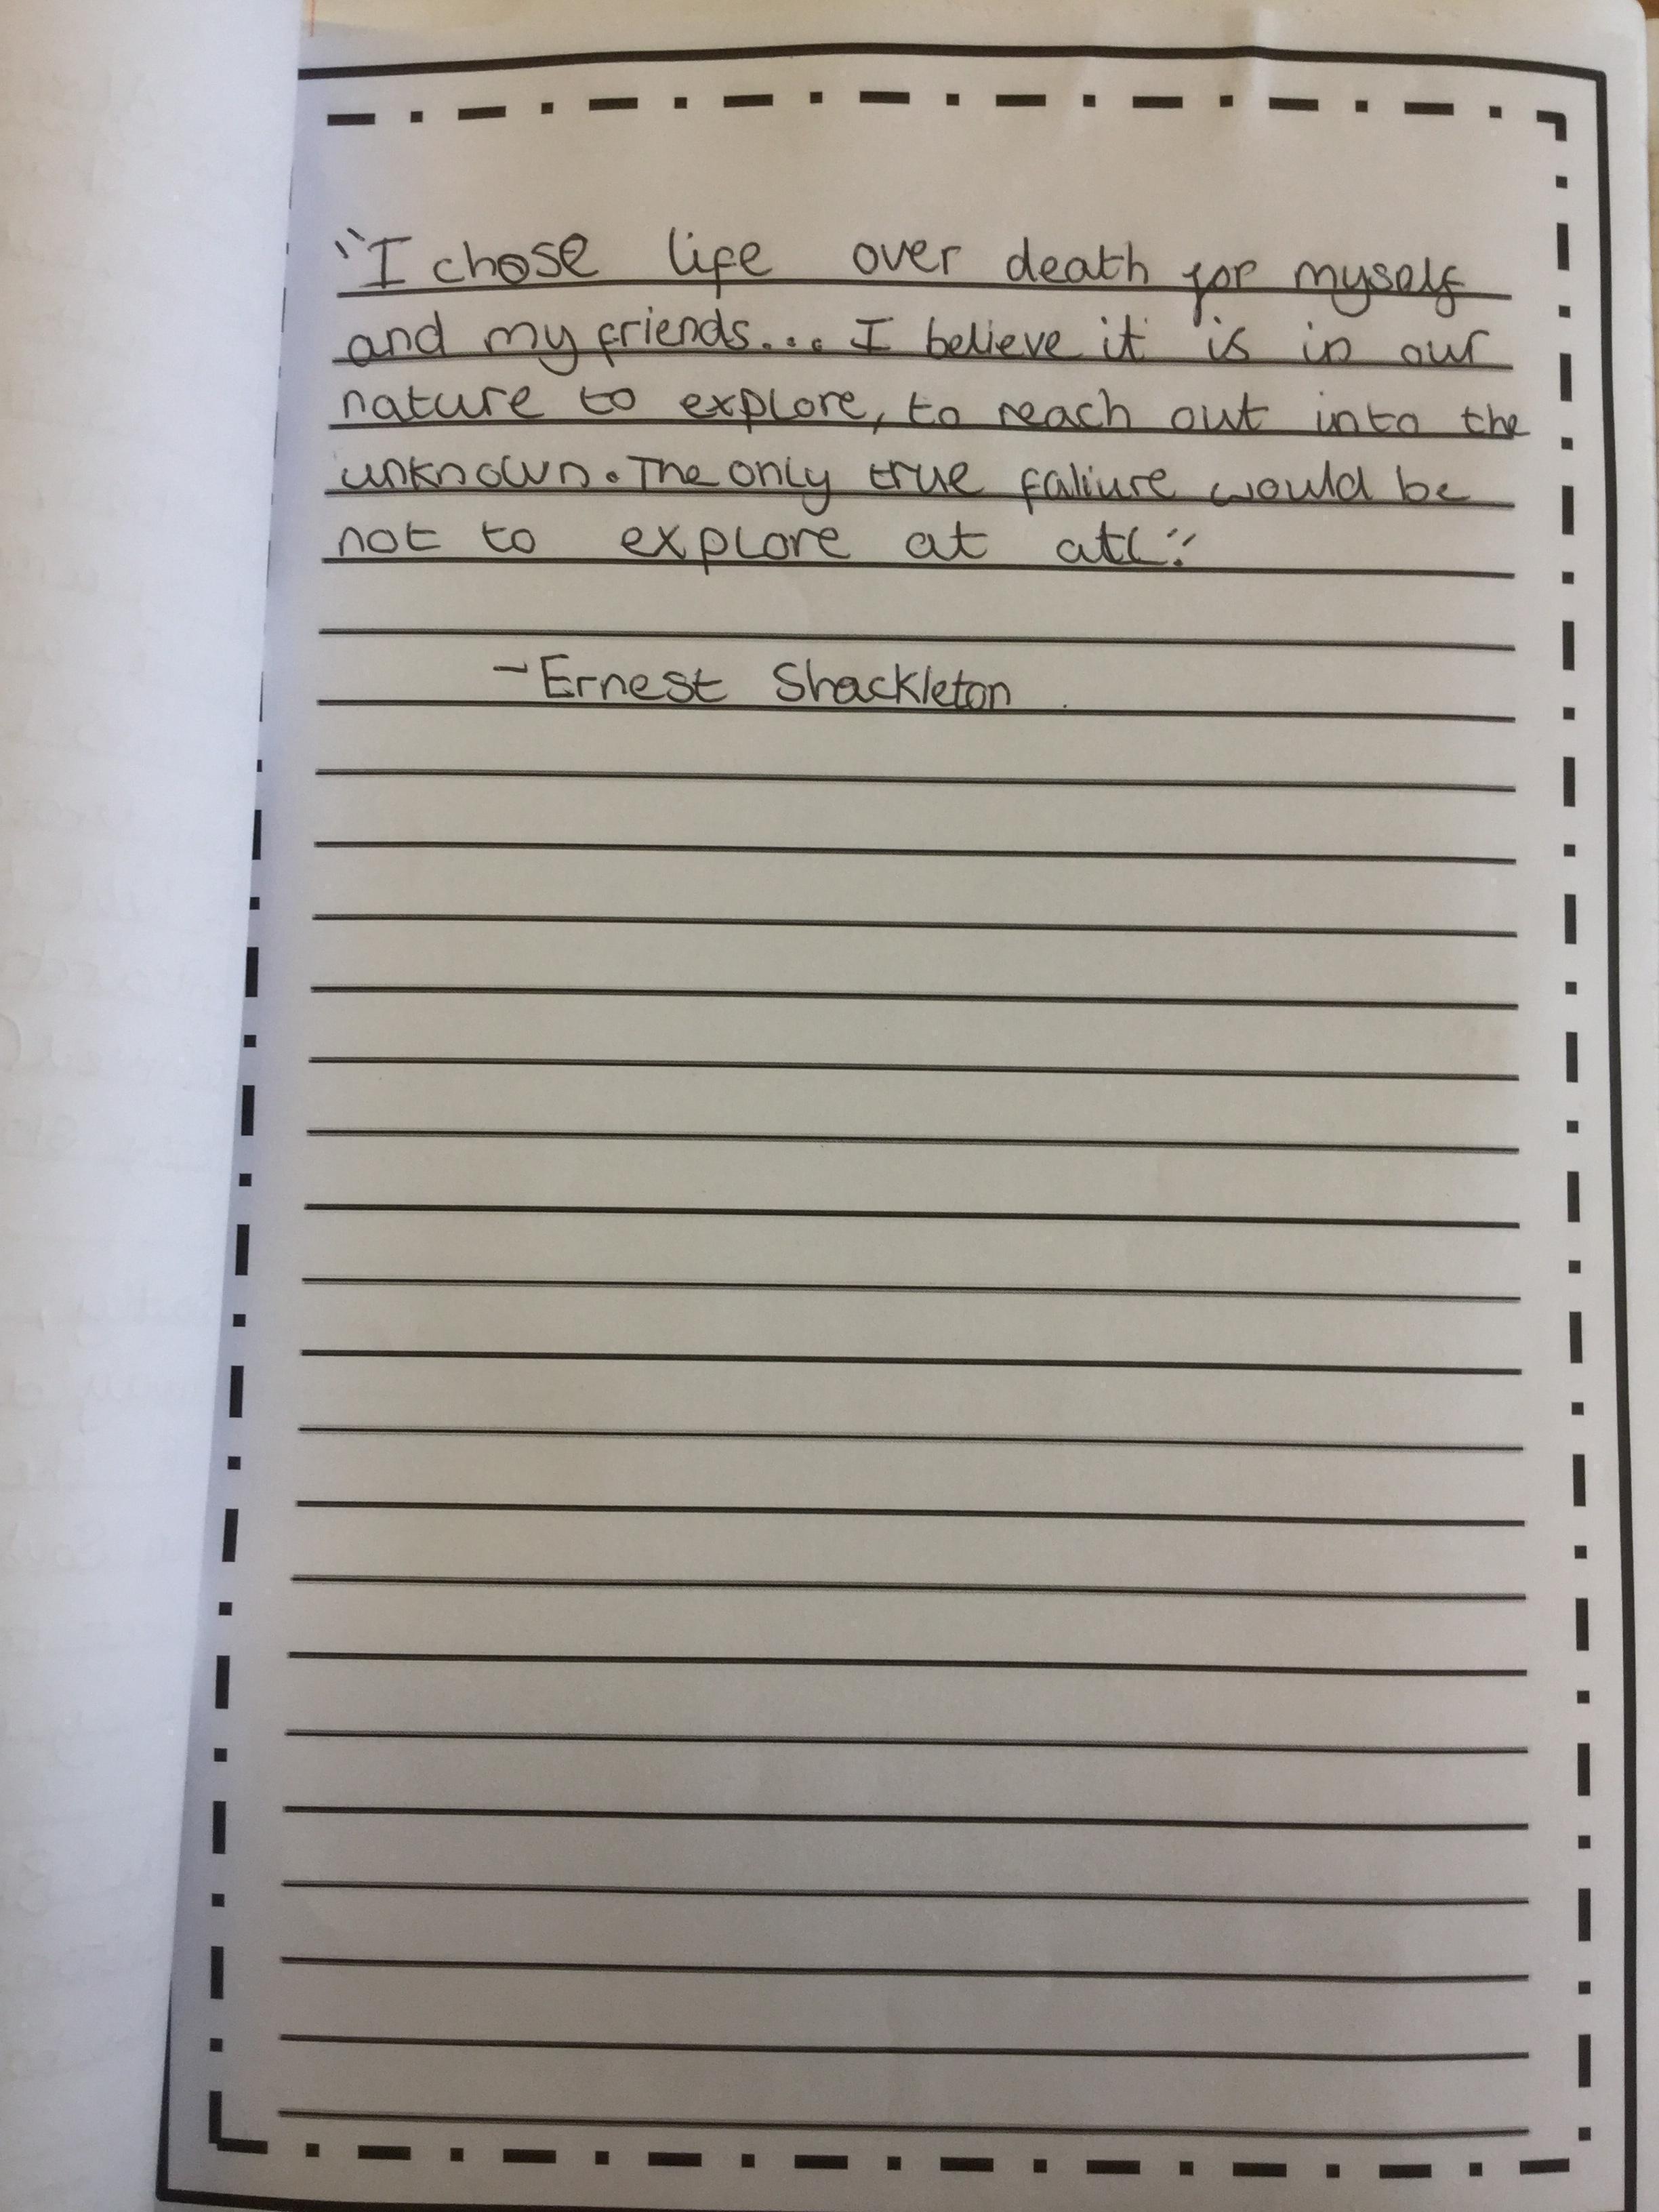 "I chose life over death for myself
and my friends... I believe it is in our
nature to explore, to reach out into the
unknown. The only true faliure would be
not to explore at all."
-Ernest Shackleton